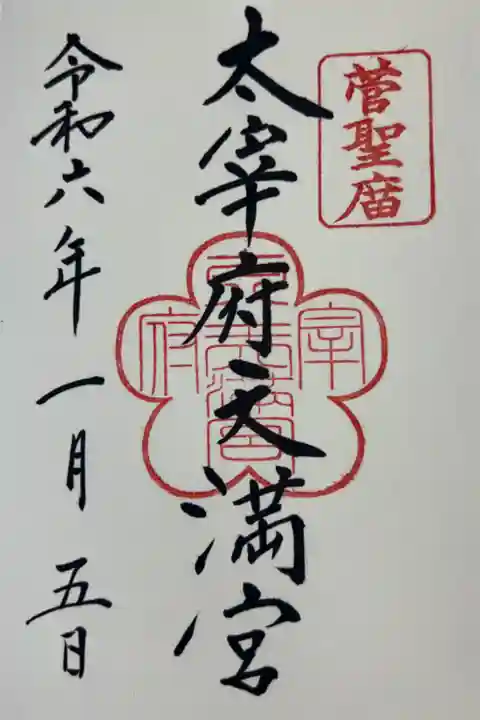 菅聖庿
太宰府天満宮
令和六年一月五日